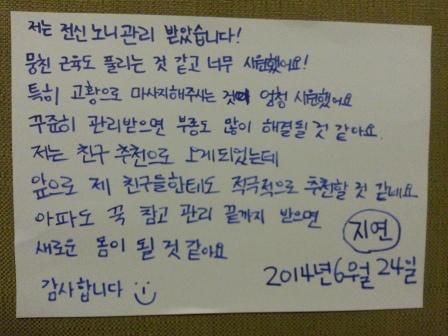 저는 전신 노니관리 받았습니다!
뭉친 근육도 풀리는 것 같고 너무 시원했어요!
특히 고황으로 마사지해주시는 것이 엄청 시원했어요
꾸준히 관리받으면 부종도 많이 해결될 것 같아요.
저는 친구 추천으로 오게되었는데
앞으로 제 친구들한테도 적극적으로 추천할 것 같네요
아파도 꾹 참고 관리 끝까지 받으면
새로운 몸이 될 것 같아요
지연
감사합니다
2014년 6월 24일